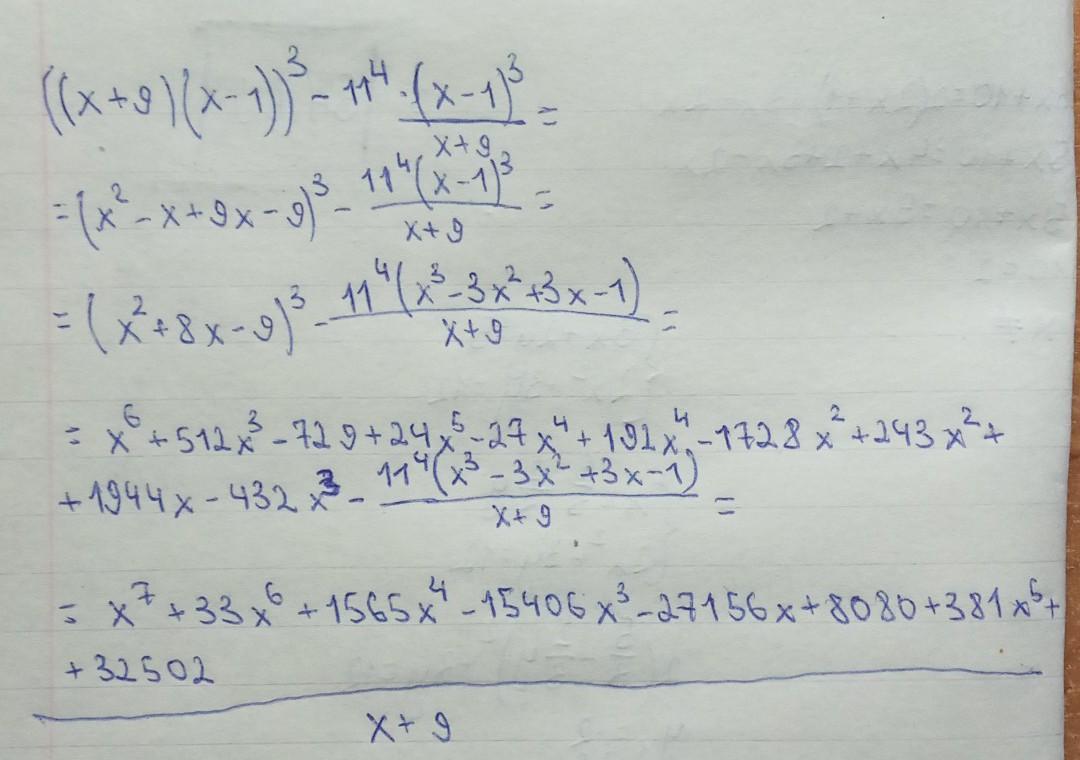 ((x+9)(x-1))³ - 11⁴ · (x-1)³/(x+9) =
= (x² - x + 9x - 9)³ - 11⁴(x-1)³/(x+9) =
= (x² + 8x - 9)³ - 11⁴(x³ - 3x² + 3x - 1)/(x+9) =
= x⁶ + 512x³ - 729 + 24x⁵ - 27x⁴ + 192x⁴ - 1728x² + 243x² +
+ 1944x - 432x³ - 11⁴(x³ - 3x² + 3x - 1)/(x+9) =
= x⁷ + 33x⁶ + 1565x⁴ - 15406x³ - 27156x + 8080 + 381x⁵ +
+ 32502
x + 9